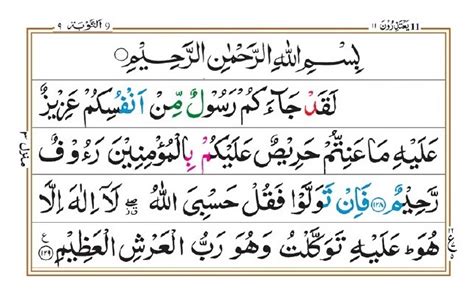 ١١ يَعْتَذِرُوْنَ 11
اَلتَّوْبَة ٩
بِسْمِ اللهِ الرَّحْمٰنِ الرَّحِيْمِ
لَقَدْ جَآءَكُمْ رَسُوْلٌ مِّنْ اَنْفُسِكُمْ عَزِيْزٌ
عَلَيْهِ مَا عَنِتُّمْ حَرِيْصٌ عَلَيْكُمْ بِالْمُؤْمِنِيْنَ رَءُوْفٌ
رَّحِيْمٌ ﴿١٢٨﴾ فَاِنْ تَوَلَّوْا فَقُلْ حَسْبِىَ اللهُ لَآ اِلٰهَ اِلَّا
هُوَ ؕ عَلَيْهِ تَوَكَّلْتُ وَهُوَ رَبُّ الْعَرْشِ الْعَظِيْمِ ﴿١٢٩﴾
منزل ٢